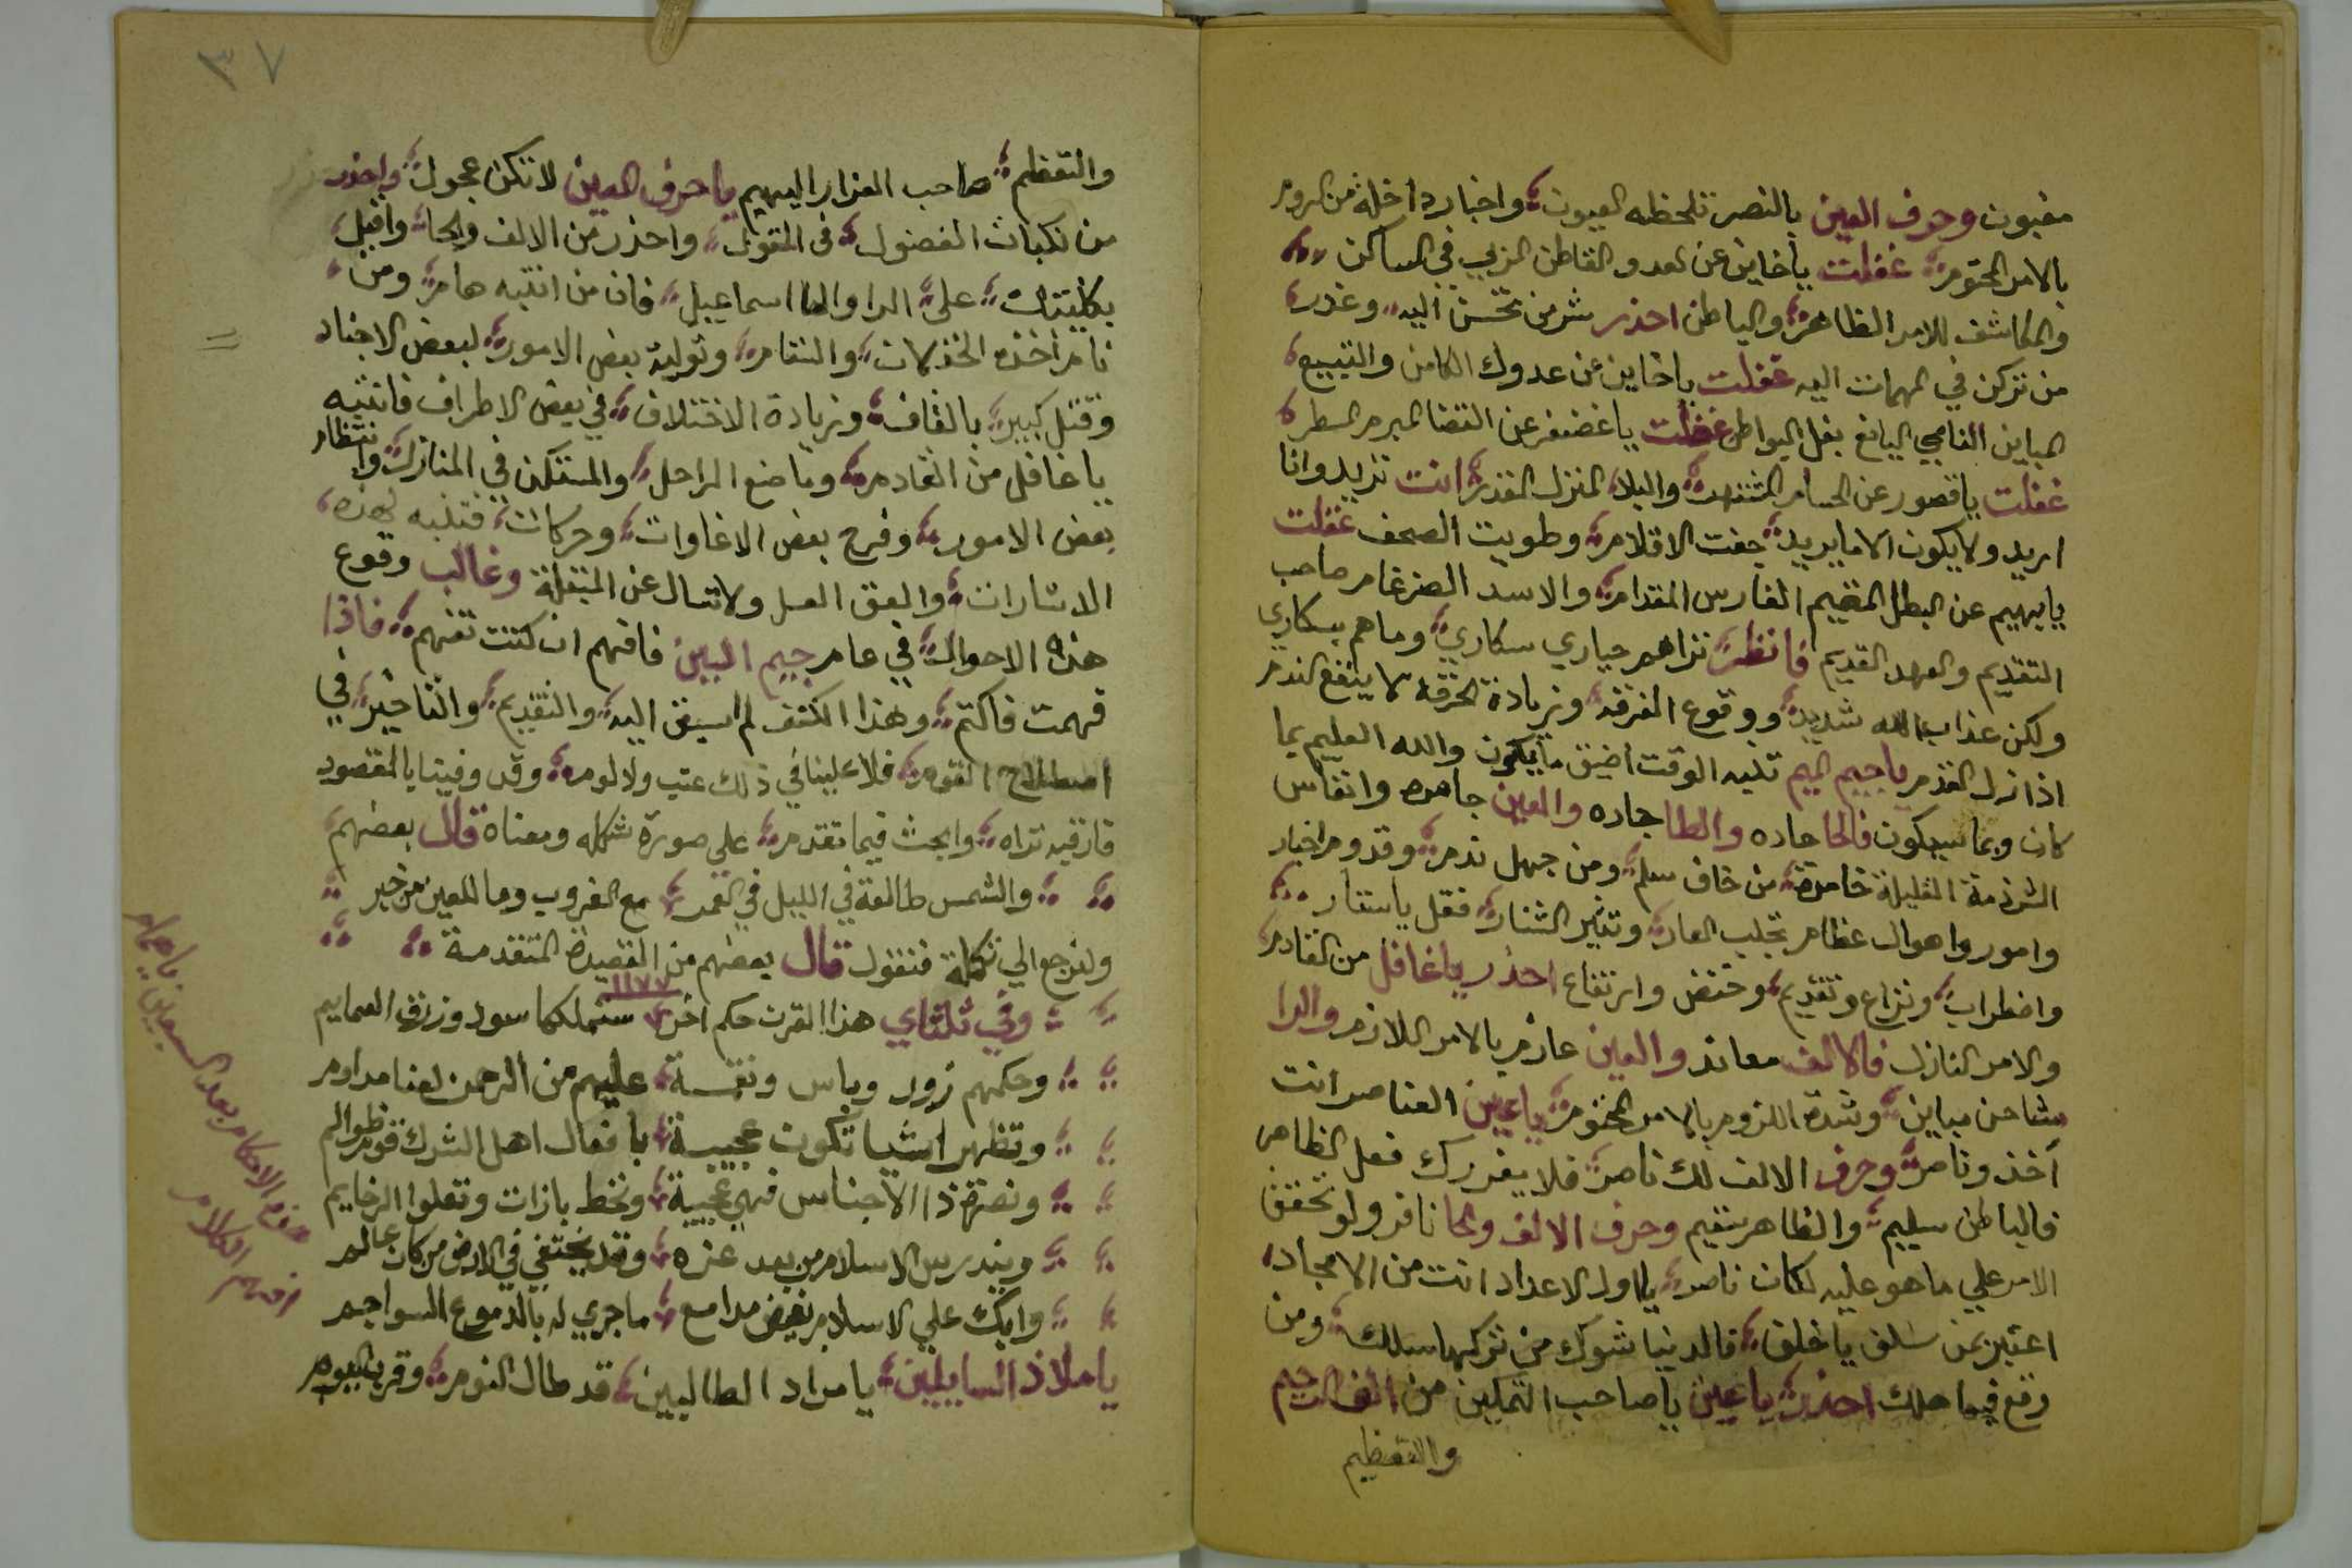 مغبون وحرف العين بالنصر تلحظه العيون واخبار داخلة من الروم
بالامر المحتوم غفلت ياخاين عن لعدو القاطن الزبي في المساكن
والمكاشف للامر الظاهر والباطن احذر شر من تحسن اليه وغدر
من تركن في المهمات اليه غفلت ياخاين عن عدوك الكامن والتبيع
المباين النامي اليانع بغل البواطن غفلت ياغضنفر عن القضا المبرم المسطر
غفلت ياقصور عن الحسام المشتهر والبلا المنزل المقدر انت تريد وانا
اريد ولا يكون الا ما يريد جفت الاقلام وطويت الصحف غفلت
يابهيم عن البطل المقيم الفارس المقدام والاسد الضرغام صاحب
التقديم والعهد القديم فانظر تراهم حياري سكاري وماهم بسكاري
ولكن عذاب الله شديد ووقوع الفرقة وزيادة الحرقه لا ينفع الندم
اذا زل القدم ياجيم الميم تليه الوقت اضيق ما يكون والله العليم بما
كان وبما سيكون فالحا حاده والطا جاده والعين جامده وانفاس
الشرذمة القليلة خامدة من خاف سلم ومن جهل ندم وقدوم اخبار
وامور واهوال عظام تجلب العار وتثير الشنار فقل ياستار
واضطراب ونزاع وتقديم وخفض وارتفاع احذر ياغافل من القادم
والامر النازل فالالف معاند والعين عازم بالامر اللازم والرا
مشاحن مباين وشدة اللزوم بالامر المحتوم ياعين العناصر انت
آخذ وناصر وحرف الالف لك ناصر فلا يغررك فعل الظاهر
فالباطن سليم والظاهر سقيم وحرف الالف والحا نافر ولو تحقق
الامر علي ما هو عليه لكان ناصر يااول الاعداد انت من الامجاد
اعتبر بمن سلف ياخلف فالدنيا شوك من تركها سلك ومن
وقع فيها هلك احذر ياعين ياصاحب التمكين من الف الجيم
والتعظيم
٣٧
والتعظم صاحب العزار اليهيم ياحرف العين لا تكن عجول واحذر
من نكبات الفضول في المقول واحذر من الالف والحا واقبل
بكليتك على الرا والها اسماعيل فان من انتبه هام ومن
نام اخذه الخذلان والنقام وتولية بعض الامور لبعض الاجناد
وقتل كبير بالقاف وزيادة الاختلاف في بعض الاطراف فانتبه
ياغافل من القادم وناضع المراحل والمستكن في المنازل وانتظار
بعض الامور وفرج بعض الاغاوات وحركات فتنبه لهذه
الاشارات والعق العسل ولا تسال عن المبقلة وغالب وقوع
هذه الاحوال في عام جيم البين فافهم ان كنت تفهم فاذا
فهمت فاكتم وهذا الكشف لم اسبق اليه والتقديم والتاخير في
اصطلاح القوم فلا علينا في ذلك عتب ولا لوم وقد وفينا بالمقصود
فارقب تراه وابحث فيما تقدم علي صورة شكله ومعناه قال بعضهم
والشمس طالعة في الليل في القمر مع الغروب وما للعين من خبر
ولنرجع الي تكملة فنقول قال بعضهم من القصيدة المتقدمة
١١٧٧
وفي ثلثاي هذا القرن حكم اخر ستملكها سود وزرق العمايم
وحكمهم زور وباس ونقمسة عليهم من الرحمن لعنا مداوم
وتظهر اشيا تكون عجيبة بافعال اهل الشرك قوم ظوالم
ونصرة ذا الاجناس فهي عجيبة وتخط بازات وتعلوا الرخايم
ويندرس الاسلام من بعد عزه وقد يختفي في الارض من كان عالم
وابك علي الاسلام بفيض مدامع ماجري له بالدموع السواجم
ياملاذ السايلين يامراد الطالبين قد طال النوم وقرب اليوم
افهم الكلام